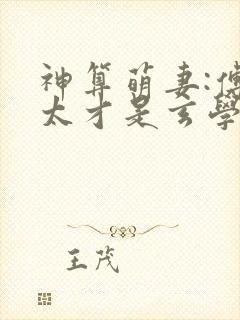 神算萌妻:傅
太才是玄學
王茂